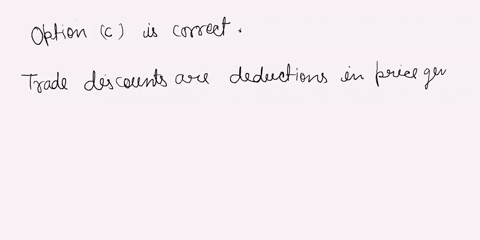 Option (c) is correct.
Trade discounts are deductions in price gen